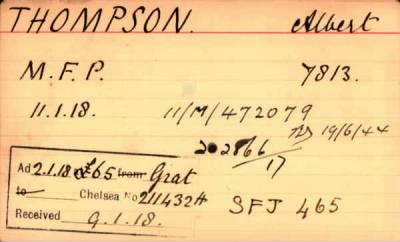 THOMPSON. Albert
M.F.P. 7813.
11.1.18. 11/M/472079
19/6/44
202866/17
Ad 2.1.18 £65 from Grat
to Chelsea No 211432A
Received 9.1.18.
SFJ 465